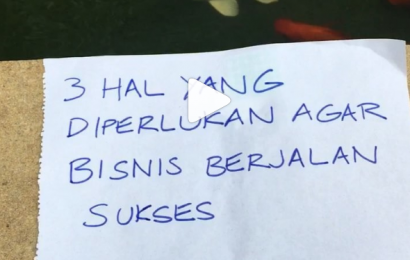 3 HAL YANG
DIPERLUKAN AGAR
BISNIS BERJALAN
SUKSES